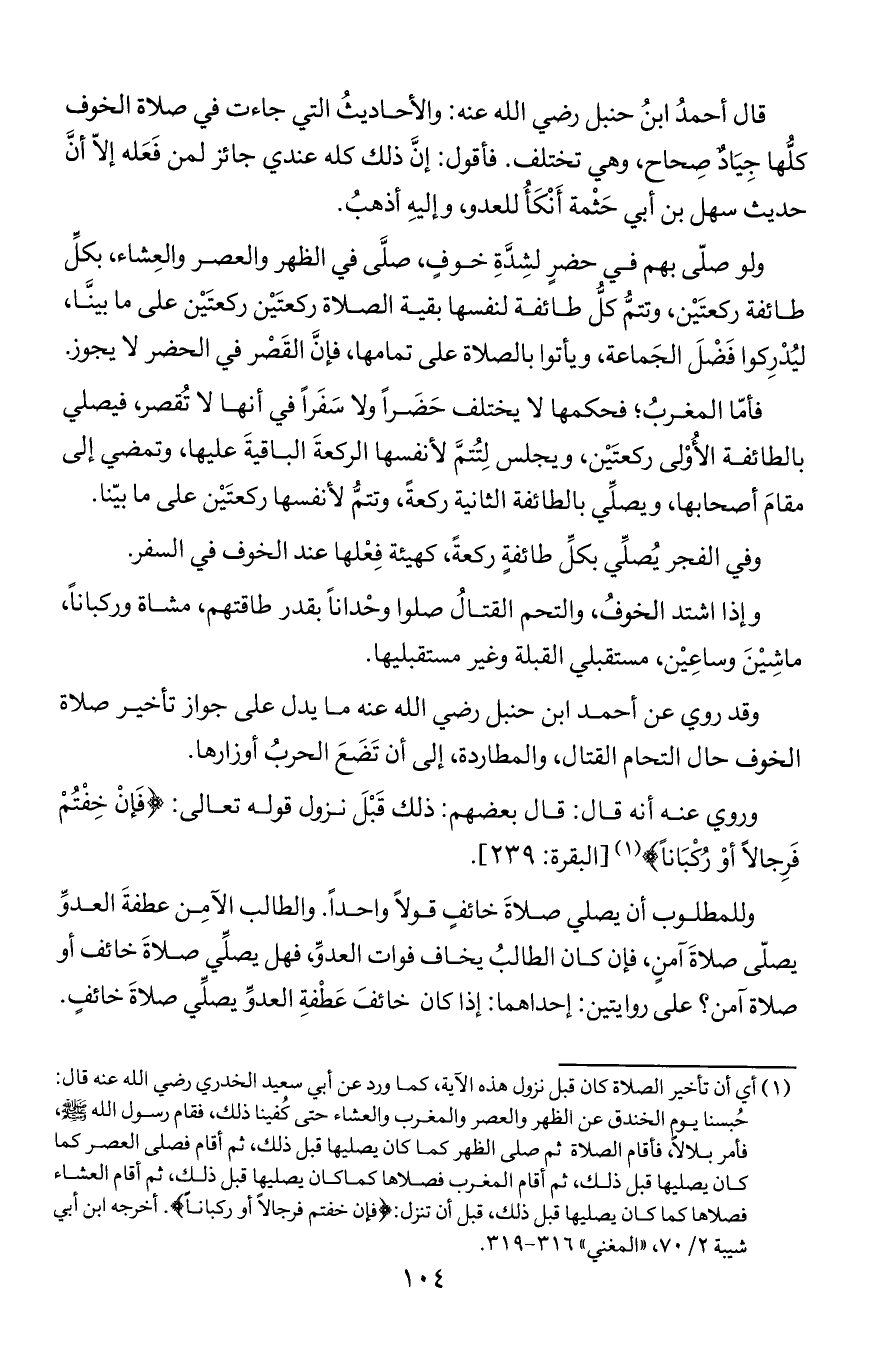 قال أحمدُ ابنُ حنبل رضي الله عنه: والأحاديثُ التي جاءت في صلاة الخوف
كلُّها جِيَادٌ صِحاح، وهي تختلف. فأقول: إنَّ ذلك كله عندي جائز لمن فَعَله إلاّ أنَّ
حديث سهل بن أبي حَثْمة أَنْكَأُ للعدو، وإليهِ أذهبُ.
ولو صلّى بهم في حضرٍ لشِدَّةِ خوفٍ، صلَّى في الظهر والعصر والعِشاء، بكلِّ
طائفة ركعتَيْن، وتتمُّ كلُّ طائفة لنفسها بقية الصلاة ركعتَيْن ركعتَيْن على ما بينَّا،
ليُدْرِكوا فَضْلَ الجَماعة، ويأتوا بالصلاة على تمامها، فإنَّ القَصْر في الحضر لا يجوز.
فأمّا المغربُ؛ فحكمها لا يختلف حَضَراً ولا سَفَراً في أنها لا تُقصر، فيصلي
بالطائفة الأُوْلى ركعتَيْن، ويجلس لِتُتمَّ لأنفسها الركعةَ الباقيةَ عليها، وتمضي إلى
مقامَ أصحابها، ويصلِّي بالطائفة الثانية ركعةً، وتتمُّ لأنفسها ركعتَيْن على ما بيّنا.
وفي الفجر يُصلِّي بكلِّ طائفةٍ ركعةً، كهيئة فِعْلها عند الخوف في السفر.
وإذا اشتد الخوفُ، والتحم القتالُ صلوا وحْداناً بقدر طاقتهم، مشاة وركباناً،
ماشِيْنَ وساعِيْن، مستقبلي القبلة وغير مستقبليها.
وقد روي عن أحمد ابن حنبل رضي الله عنه ما يدل على جواز تأخير صلاة
الخوف حال التحام القتال، والمطاردة، إلى أن تَضَعَ الحربُ أوزارها.
وروي عنه أنه قال: قال بعضهم: ذلك قَبْلَ نزول قوله تعالى: ﴿فَإنْ خِفْتُمْ
فَرِجالاً أوْ رُكْبَاناً﴾(١) [البقرة: ٢٣٩].
وللمطلوب أن يصلي صلاةَ خائفٍ قولاً واحداً. والطالب الآمِن عطفةَ العدوِّ
يصلّى صلاةَ آمنٍ، فإن كان الطالبُ يخاف فوات العدوِّ، فهل يصلِّي صلاةَ خائف أو
صلاة آمن؟ على روايتين: إحداهما: إذا كان خائفَ عَطْفةِ العدوِّ يصلِّي صلاةَ خائفٍ.
(١) أي أن تأخير الصلاة كان قبل نزول هذه الآية، كما ورد عن أبي سعيد الخدري رضي الله عنه قال:
حُبسنا يوم الخندق عن الظهر والعصر والمغرب والعشاء حتى كُفينا ذلك، فقام رسول الله ﷺ،
فأمر بلالاً، فأقام الصلاة ثم صلى الظهر كما كان يصليها قبل ذلك، ثم أقام فصلى العصر كما
كان يصليها قبل ذلك، ثم أقام المغرب فصلاها كماكان يصليها قبل ذلك، ثم أقام العشاء
فصلاها كما كان يصليها قبل ذلك، قبل أن تنزل:﴿فإن خفتم فرجالاً أو ركباناً﴾. أخرجه ابن أبي
شيبة ٢/ ٧٠، «المغني» ٣١٦-٣١٩.
١٠٤